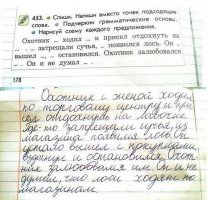 453. Спиши. Напиши вместо точек подходящие
слова. Подчеркни грамматические основы.
Нарисуй схему каждого предложения.
Охотник .. ходил .. и присел отдохнуть на
.. . .. затрещали сучья, .. появился лось. Он ..
вышел .. , .. остановился. Охотник залюбовался
.. . Он и не думал .. .
178
Охотник с женой ходил
по торговому центру и при-
сел отдохнуть на лавочке.
Где-то затрещали сучья, из
магазина появился лось. Он
устало вышел с покупками,
вздохнул и остановился. Охот-
ник залюбовался им. Он и не
думал, что лоси ходят по
магазинам.